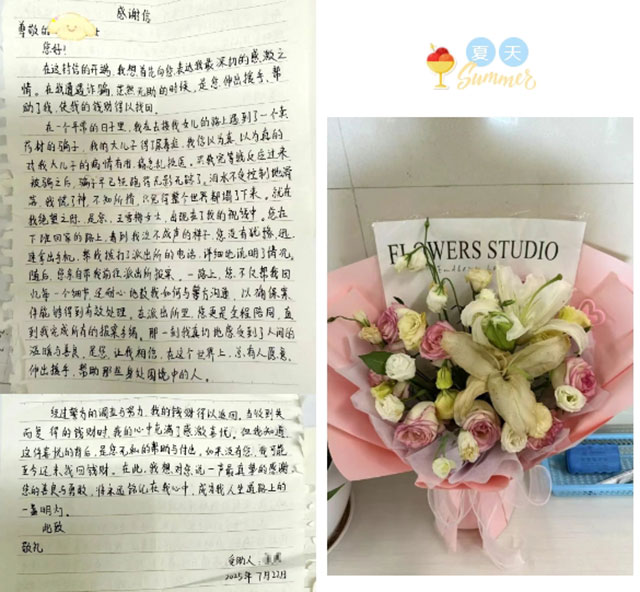 感谢信
尊敬的
您好！
在这封信的开端，我想首先向您表达我最深切的感激之
情。在我遭遇诈骗，茫然无助的时候，是您伸出援手，帮
助了我，使我的钱财得以找回。
在一个平常的日子里，我在去接我女儿的路上遇到了一个卖
药材的骗子，我的大儿子得了尿毒症，我信以为真，以为真的
对我大儿子的病情有用，病急乱投医。只我完等钱反应过来
被骗之后，骗子早已经跑得无影无踪了。泪水不受控制地滑
落，我慌了神，不知所措，只觉得整个世界都塌了下来。就在
我绝望之际，是您，王雪梅女士，出现在了我的视线中。您在
下班回家的路上，看到我泣不成声的样子，您没有犹豫，迅
速拿出手机，帮我拨打了派出所的电话，详细地说明了情况。
随后，您亲自带我前往派出所报案，一路上，您不仅帮我回
忆每一个细节，还耐心地教我如何与警方沟通，以确保案
件能够得到有效处理。在派出所里，您更是全程陪同，直
到我完成所有的报案手续。那一刻我真切地感受到了人间的
温暖与善良，是您，让我相信，在这个世界上，总有人愿意
伸出援手，帮助那些身处困境中的人。
经过警方的调查与努力，我的钱财得以返回。当收到失
而复得的钱财时，我的心中充满了感激喜悦。但我知道，
这份喜悦的背后，是您无私的帮助与付出，如果没有您，我可能
至今还未找回钱财。在此，我想对您说一声最真挚的感谢
您的善良与勇敢，将永远铭记在我心中，成为我人生道路上的
一盏明灯。
此致
敬礼
受助人
2025年7月22日
夏天
Summer
FLOWERS STUDIO